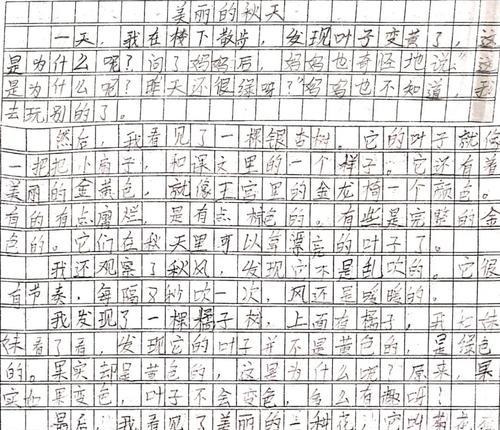 美丽的秋天
一天，我在楼下散步，发现叶子变黄了，这
是为什么呢？问了妈妈后，妈妈也奇怪地说："这
是为什么呢？昨天还很绿呀？"妈妈也不知道，我
去玩别的了。
然后，我看见了一棵银杏树。它的叶子就像
一把把小扇子，和课文里的一个样子。它还有着
美丽的金黄色，就像王宫里的金龙椅一个颜色。
有的有点腐烂，是有点棕色的。有些是完整的金
色的。它们在秋天里可以算漂亮的叶子了。
我还观察了秋风，发现它不是乱吹的。它很
有节奏，每隔 秒吹一次，风还是暖暖的。
我发现了一棵橘子树，上面有橘子，我
妹看了看，发现它的叶子并不是黄色的，是绿色
的。果实却是黄色的，这里为什么呢？原来，果
实如果变色，叶子不会变色，多么有趣呀！
最后，我看见了美丽的一种花，它叫